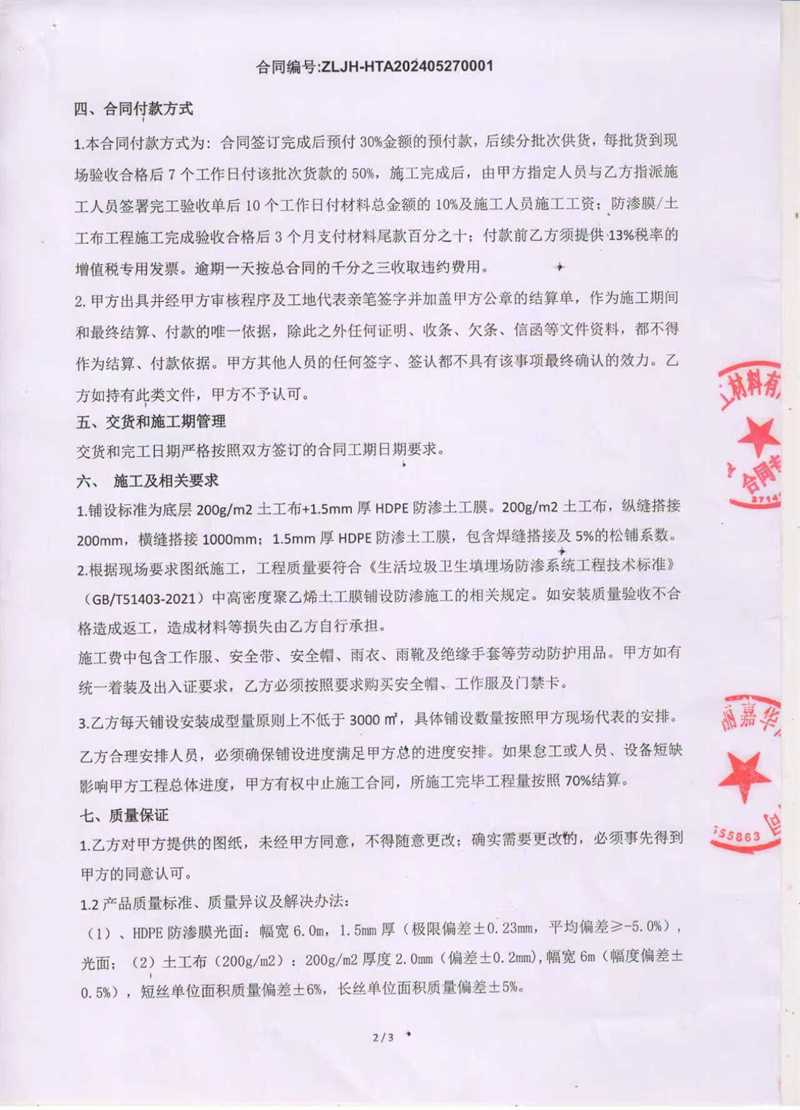 合同编号:ZLJH-HTA202405270001
四、合同付款方式
1.本合同付款方式为: 合同签订完成后预付 30%金额的预付款，后续分批次供货，每批货到现
场验收合格后 7 个工作日付该批次货款的 50%，施工完成后，由甲方指定人员与乙方指派施
工人员签署完工验收单后 10 个工作日付材料总金额的 10%及施工人员施工工资；防渗膜/土
工布工程施工完成验收合格后 3 个月支付材料尾款百分之十；付款前乙方须提供 13%税率的
增值税专用发票。逾期一天按总合同的千分之三收取违约费用。
2. 甲方出具并经甲方审核程序及工地代表亲笔签字并加盖甲方公章的结算单，作为施工期间
和最终结算、付款的唯一依据，除此之外任何证明、收条、欠条、信函等文件资料，都不得
作为结算、付款依据。甲方其他人员的任何签字、签认都不具有该事项最终确认的效力。乙
方如持有此类文件，甲方不予认可。
五、交货和施工期管理
交货和完工日期严格按照双方签订的合同工期日期要求。
六、 施工及相关要求
1.铺设标准为底层 200g/m2 土工布+1.5mm 厚 HDPE 防渗土工膜。200g/m2 土工布，纵缝搭接
200mm，横缝搭接 1000mm；1.5mm 厚 HDPE 防渗土工膜，包含焊缝搭接及 5%的松铺系数。
2.根据现场要求图纸施工，工程质量要符合《生活垃圾卫生填埋场防渗系统工程技术标准》
（GB/T51403-2021）中高密度聚乙烯土工膜铺设防渗施工的相关规定。如安装质量验收不合
格造成返工，造成材料等损失由乙方自行承担。
施工费中包含工作服、安全带、安全帽、雨衣、雨靴及绝缘手套等劳动防护用品。甲方如有
统一着装及出入证要求，乙方必须按照要求购买安全帽、工作服及门禁卡。
3.乙方每天铺设安装成型量原则上不低于 3000 ㎡，具体铺设数量按照甲方现场代表的安排。
乙方合理安排人员，必须确保铺设进度满足甲方总的进度安排。如果怠工或人员、设备短缺
影响甲方工程总体进度，甲方有权中止施工合同，所施工完毕工程量按照 70%结算。
七、质量保证
1.乙方对甲方提供的图纸，未经甲方同意，不得随意更改；确实需要更改的，必须事先得到
甲方的同意认可。
1.2 产品质量标准、质量异议及解决办法：
（1）、HDPE 防渗膜光面：幅宽 6.0m，1.5mm 厚（极限偏差±0.23mm，平均偏差≥-5.0%），
光面；（2）土工布（200g/m2）：200g/m2 厚度 2.0mm（偏差±0.2mm),幅宽 6m（幅度偏差±
0.5%），短丝单位面积质量偏差±6%，长丝单位面积质量偏差±5%。
2 / 3
工材料有
合同专
3714
丽嘉华
司
555863